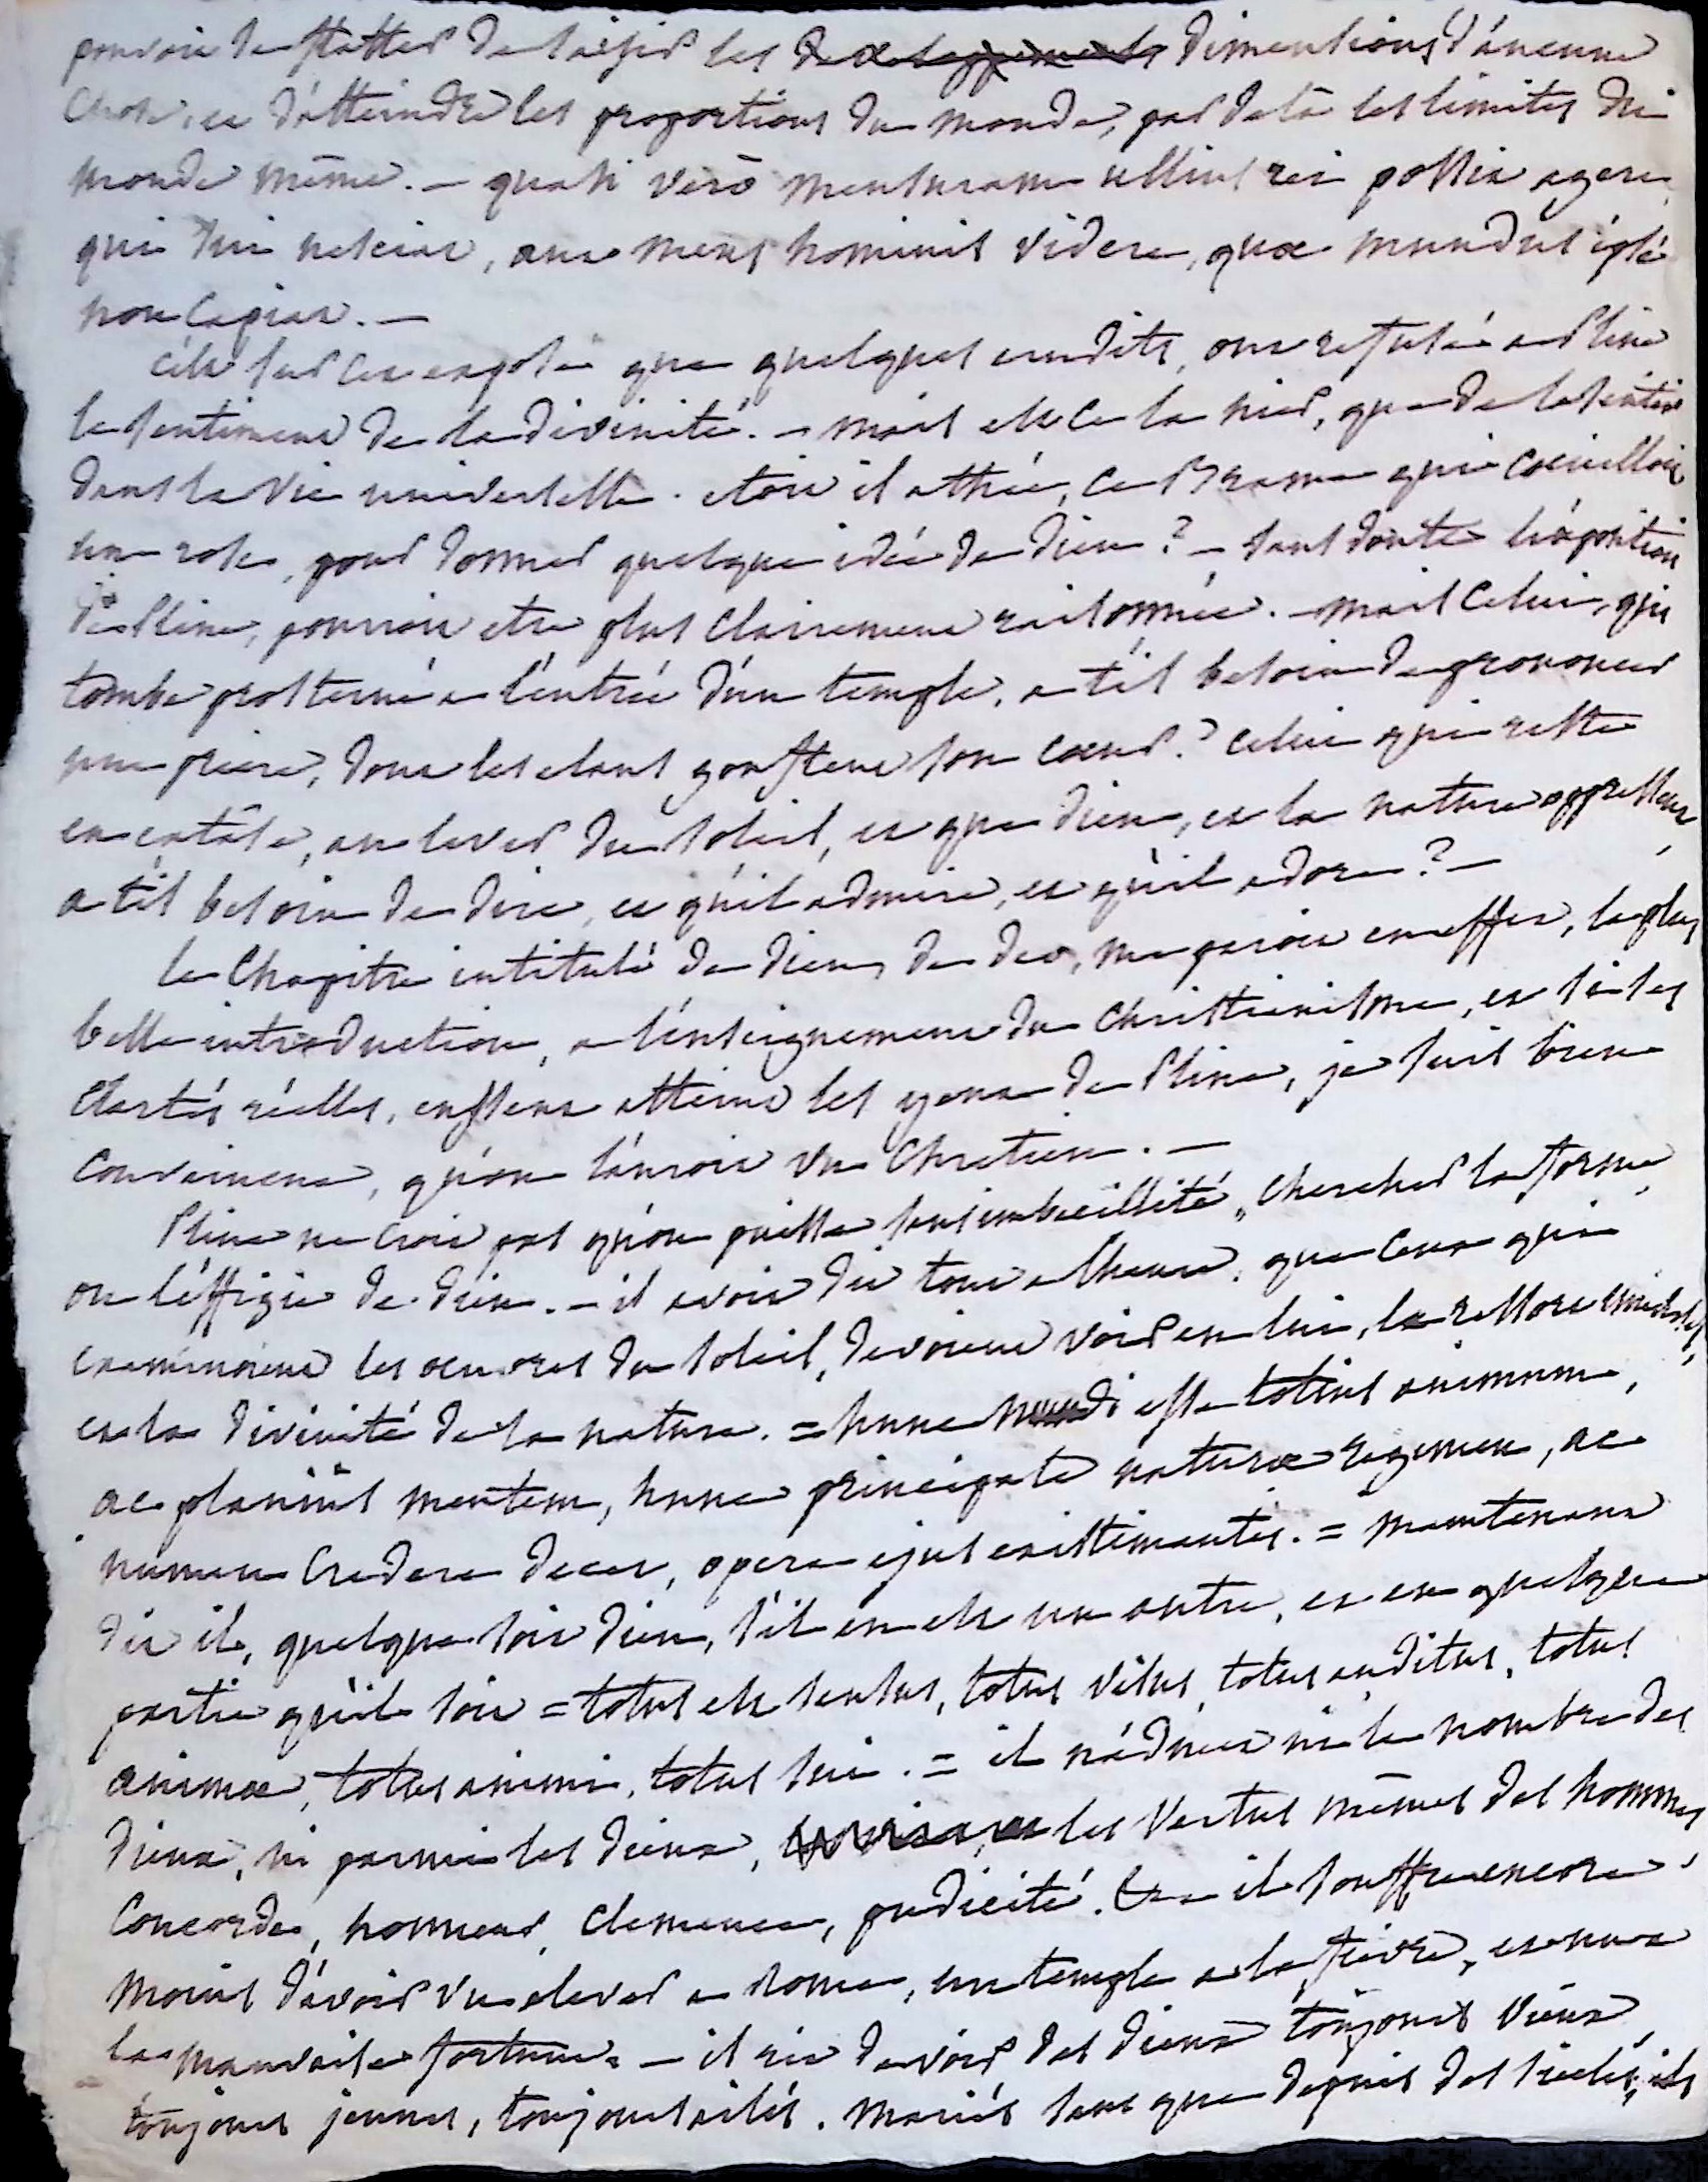 pouvoir se flatter de saisir les developpements dimentions d'aucune
chose, et d'atteindre les proportions du monde, par dela les limites du
monde même. — quasi vero mensuram ullius rei possit agere,
qui sui nesciat, aut mens hominis videre, quæ mundus ipse
non capiat. —
c'est sur cet exposé que quelques erudits, ont refusé a Pline
le sentiment de la divinité. — mais est ce la nier, que de la sentir
dans la vie universelle. etoit il athée, ce Brame qui coeuilloit
une rose, pour donner quelque idée de dieu ? — sans doute l'exposition
de Pline, pourroit etre plus clairement raisonnée. — mais celui, qui
tombe prosterné a l'entrée d'un temple, a t'il besoin de prononcer
une priere, dont les elans gonflent son coeur ? celui qui reste
en extase, au lever du soleil, et que dieu, et la nature oppressent,
a t'il besoin de dire, et qu'il admire, et qu'il adore ? —
le chapitre intitulé de dieu, de deo, me paroit en effet, la plus
belle introduction, a l'enseignement du christianisme, et si les
clartés réelles, eussent atteint les yeux de Pline, je suis bien
convaincue, qu'on l'auroit vu chretien. —
Pline ne croit pas qu'on puisse sans imbecillité, chercher la forme,
ou l'effigie de dieu. — il avoit dit tout a l'heure, que ceux qui
examinoient les oeuvres du soleil, devoient voir en lui, le ressort universel,
et la divinité de la nature. = hunc mundi esse totius animum,
ac planius mentem, hunc principale naturæ regimen, ac
numen credere decet, opera ejus existimantes. = maintenant
dit il, quelque soit dieu, s'il en est un autre, et en quelque
partie qu'il soit = totus est sensus, totus visus, totus auditus, totus
animæ, totus animi, totus sui. = il n'admet ni le nombre des
dieux, ni parmi les dieux, les vertus mêmes des hommes
concorde, honneur, clemence, pudicité. il souffre encore
moins d'avoir vu elever a rome, un temple a la fievre, et un a
la mauvaise fortune. — il rit de voir des dieux toujours vieux
toujours jeunes, toujours ailés. mariés sans que depuis des siecles, ils